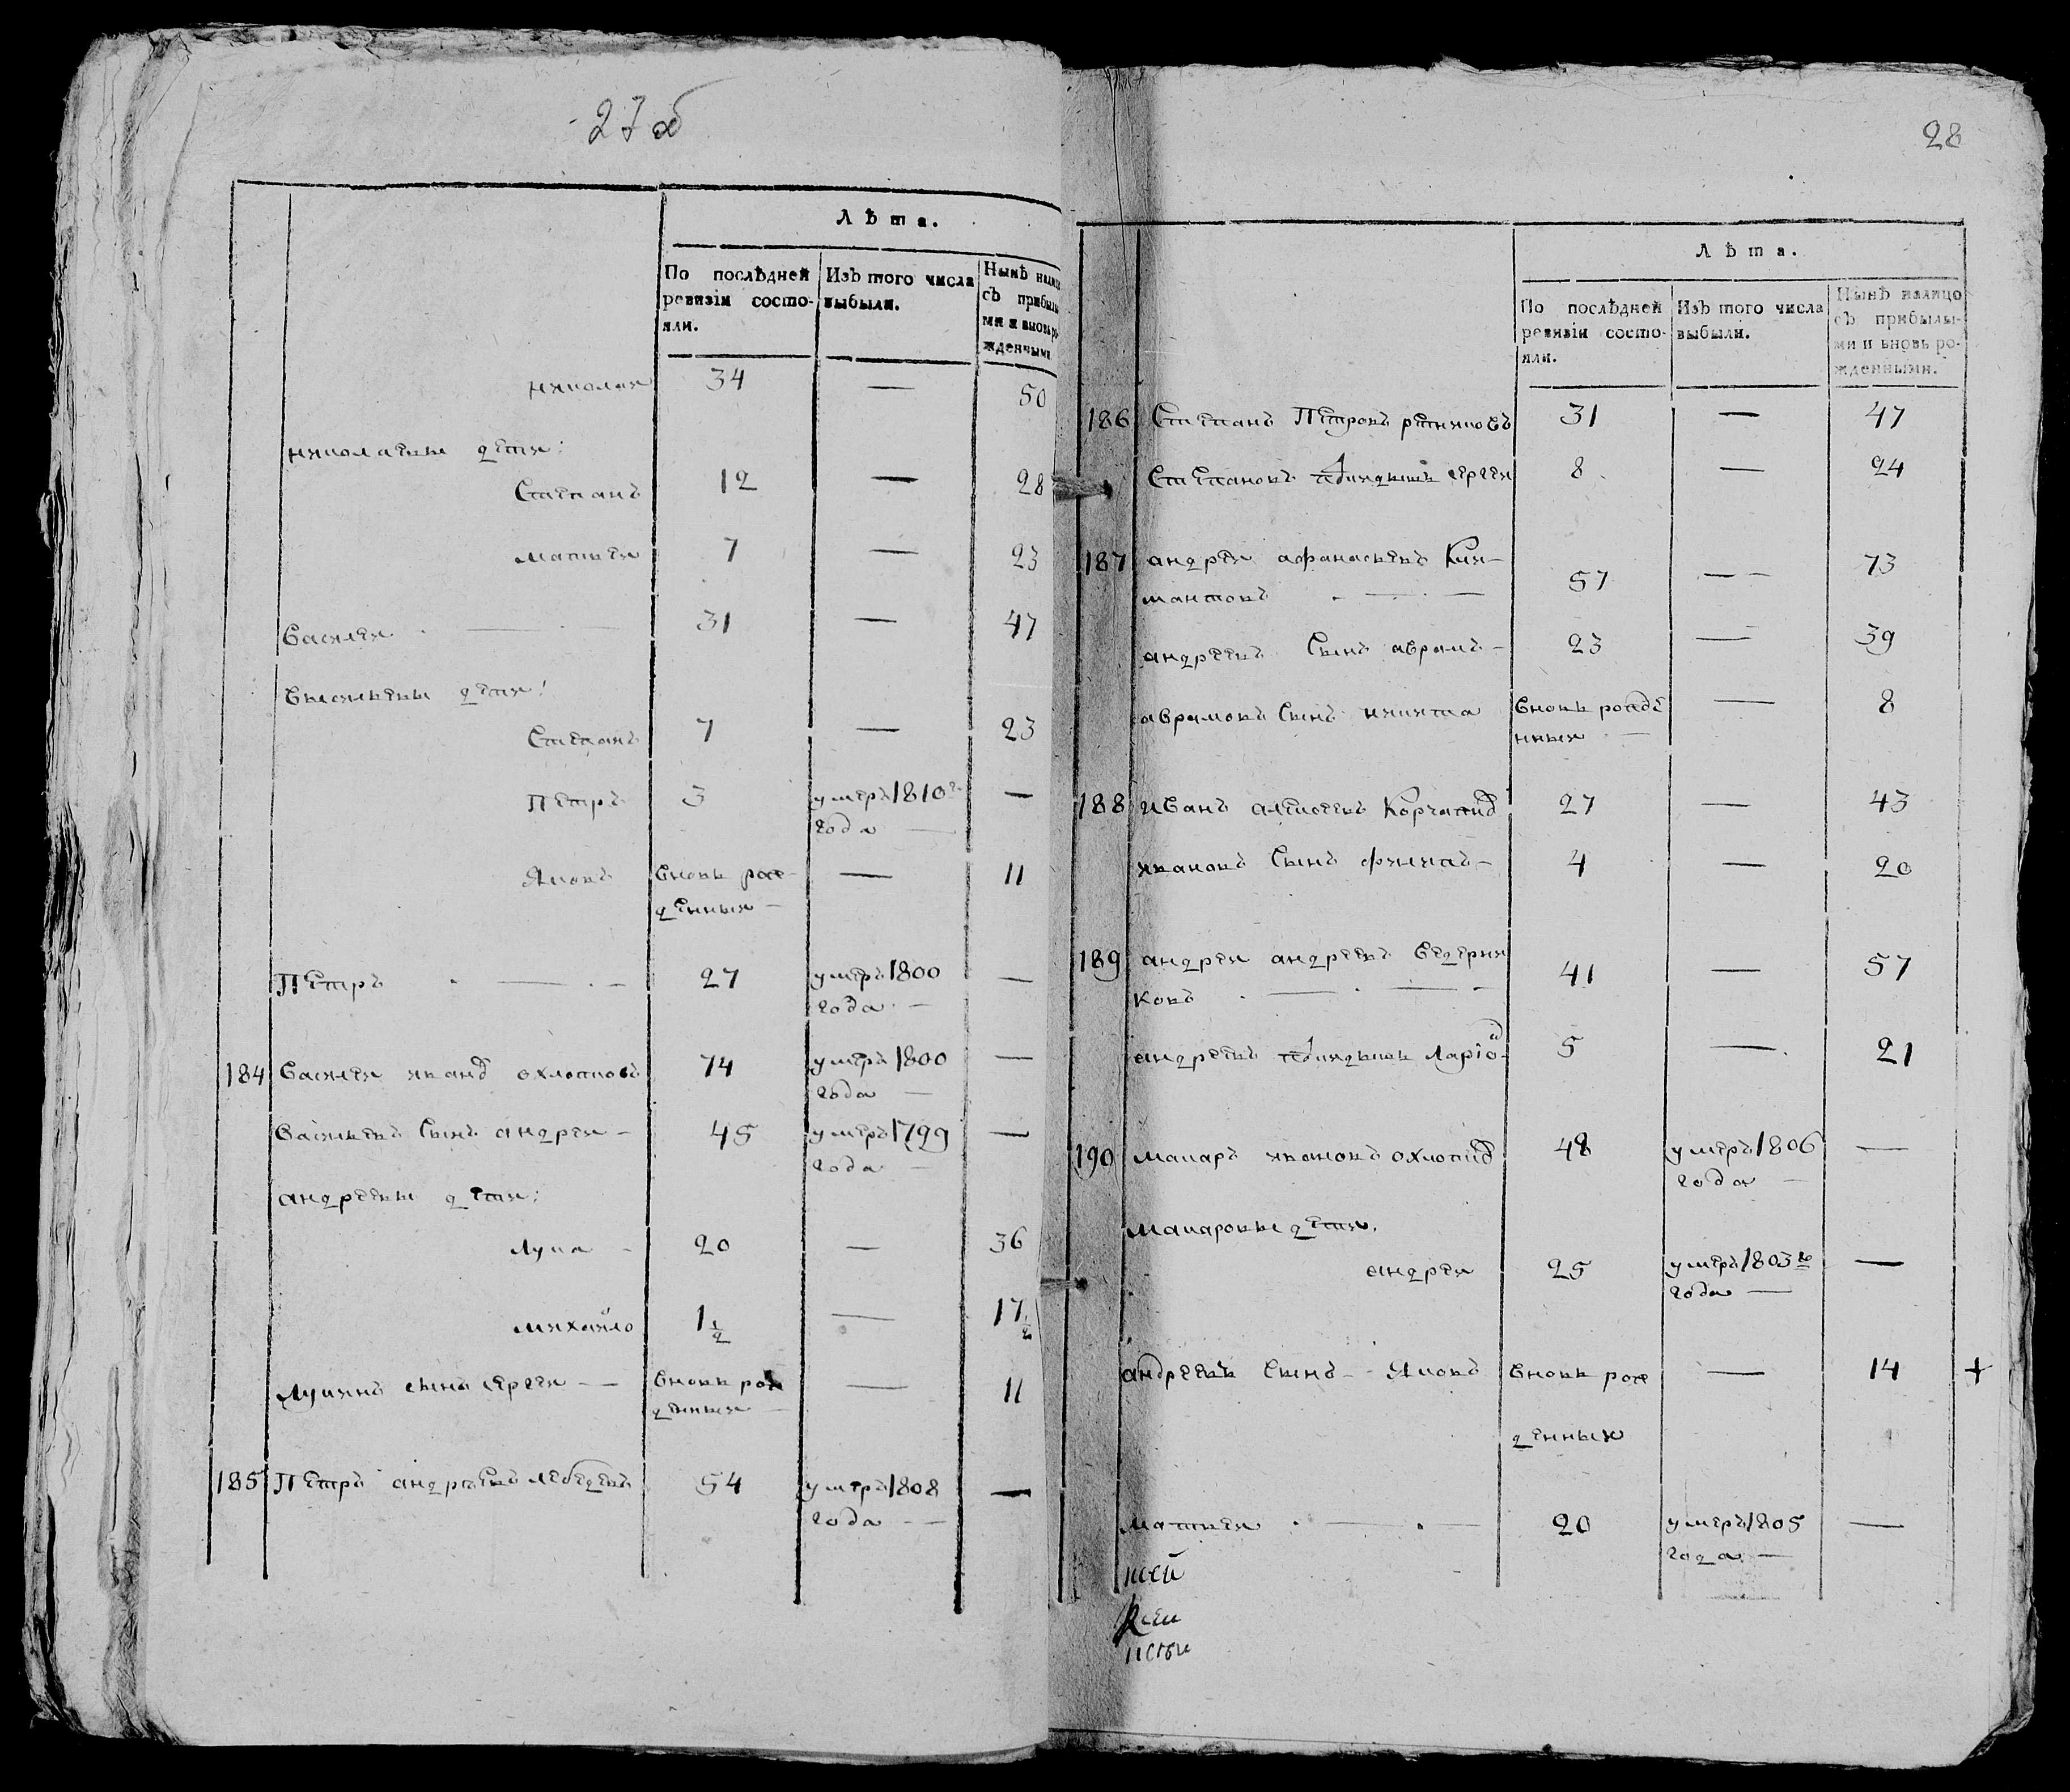 27об
Лѣта.
По послѣдней ревизіи состояли.
Изъ того числа выбыли.
Нынѣ налиц съ прибылы ми и вновь ро жденными
николая 34 — 50
николаевы дети:
Степанъ 12 — 28
матвея 7 — 23
Василея 31 — 47
Васильевы дети:
Степанъ 7 — 23
Петръ 3 умеръ 1810го —
года —
Яковъ вновь рож 11
денныи —
Петръ 27 умеръ 1800 —
года —
184 Василеи иванов охлопковъ 74 умеръ 1800 —
года —
Васильевъ сынъ андреи — 45 умеръ 1799 —
года —
андреевы дети:
Лука 20 — 36
михайло 1½ — 17½
Лукинъ сынъ сергеи — вновь рож — 11
денныи —
185 Петръ андреевъ лебедевъ 54 умеръ 1808 —
года —
28
Лѣта.
По послѣдней ревизіи состояли.
Изъ того числа выбыли.
Нынѣ налицо съ прибылыми и вновь рожденными.
186 Степанъ Петровъ 31 — 47
Степановъ сергеи 8 — 24
187 андреи афанасьевъ
57 — 73
андреевъ сынъ аврамъ — 23 — 39
аврамовъ сынъ никита вновь рожде — 8
нныи —
188 иванъ алексеевъ 27 — 43
ивановъ сынъ филипъ — 4 — 20
189 андреи андреевъ Ведерни
ковъ 41 — 57
андреевъ Ларіо 5 — 21
190 макаръ ивановъ охлопков 48 умеръ 1806 —
года —
макаровы дети:
андреи 25 умеръ 1803го —
года —
андреевъ сынъ — Яковъ вновь рож — 14 +
денныи
матвеи 20 умеръ 1805 —
года —